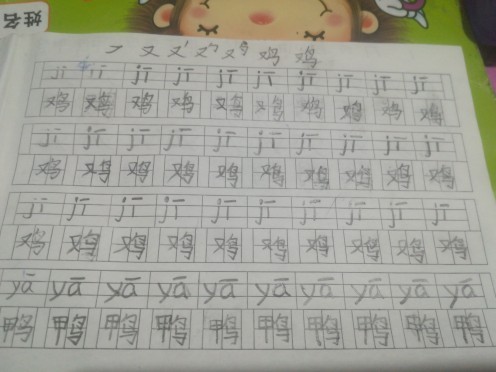 姓名
フ 又 又' 又勹 又鸟 鸡 鸡
jī jī jī jī jī jī jī jī jī jī
鸡 鸡 鸡 鸡 鸡 鸡 鸡 鸡 鸡 鸡
jī jī jī jī jī jī jī jī jī jī
鸡 鸡 鸡 鸡 鸡 鸡 鸡 鸡 鸡 鸡
jī jī jī jī jī jī jī jī jī jī
鸡 鸡 鸡 鸡 鸡 鸡 鸡 鸡 鸡 鸡
yā yā yā yā yā yā yā yā yā yā
鸭 鸭 鸭 鸭 鸭 鸭 鸭 鸭 鸭 鸭